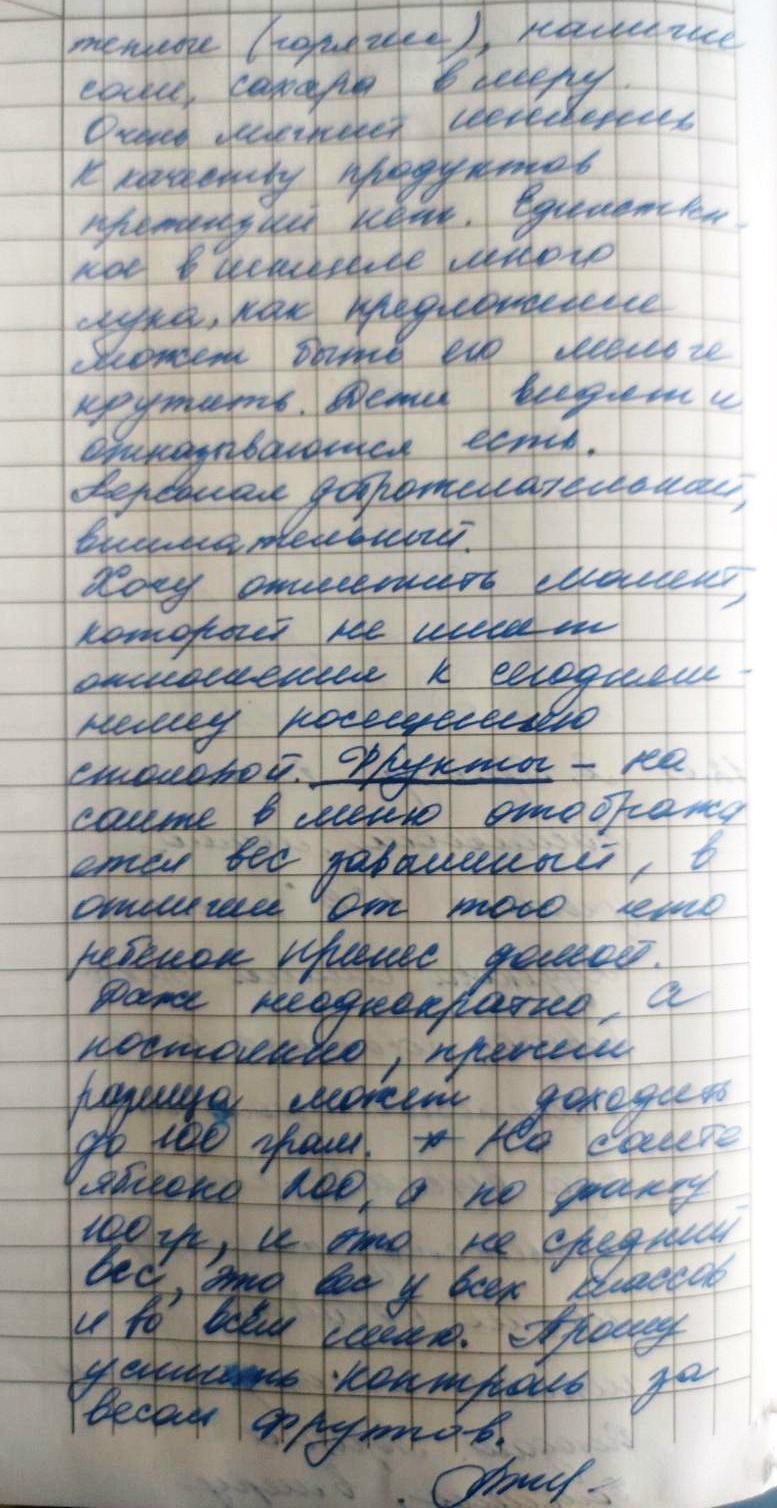 теплые (горячие), наличие
соли, сахара в меру.
Очень мягкий шницель
К качеству продуктов
претензий нет. Единствен-
ное в шницеле много
лука, как предложение
может быть его мельче
крутить. Дети видят и
отказываются есть.
Персонал доброжелательный,
внимательный.
Хочу отметить момент,
который не имеет
отношения к сегодняш-
нему посещению
столовой. Фрукты – на
сайте в меню отобража
ется вес завышенный, в
отличии от того что
ребенок принес домой.
Даже неоднократно, а
постоянно, причем
разница может доходить
до 100 грам. На сайте
яблоко 200, а по факту
100гр, и это не средний
вес, это вес у всех классов
и во всём меню. Прошу
усилить контроль за
весом фруктов.